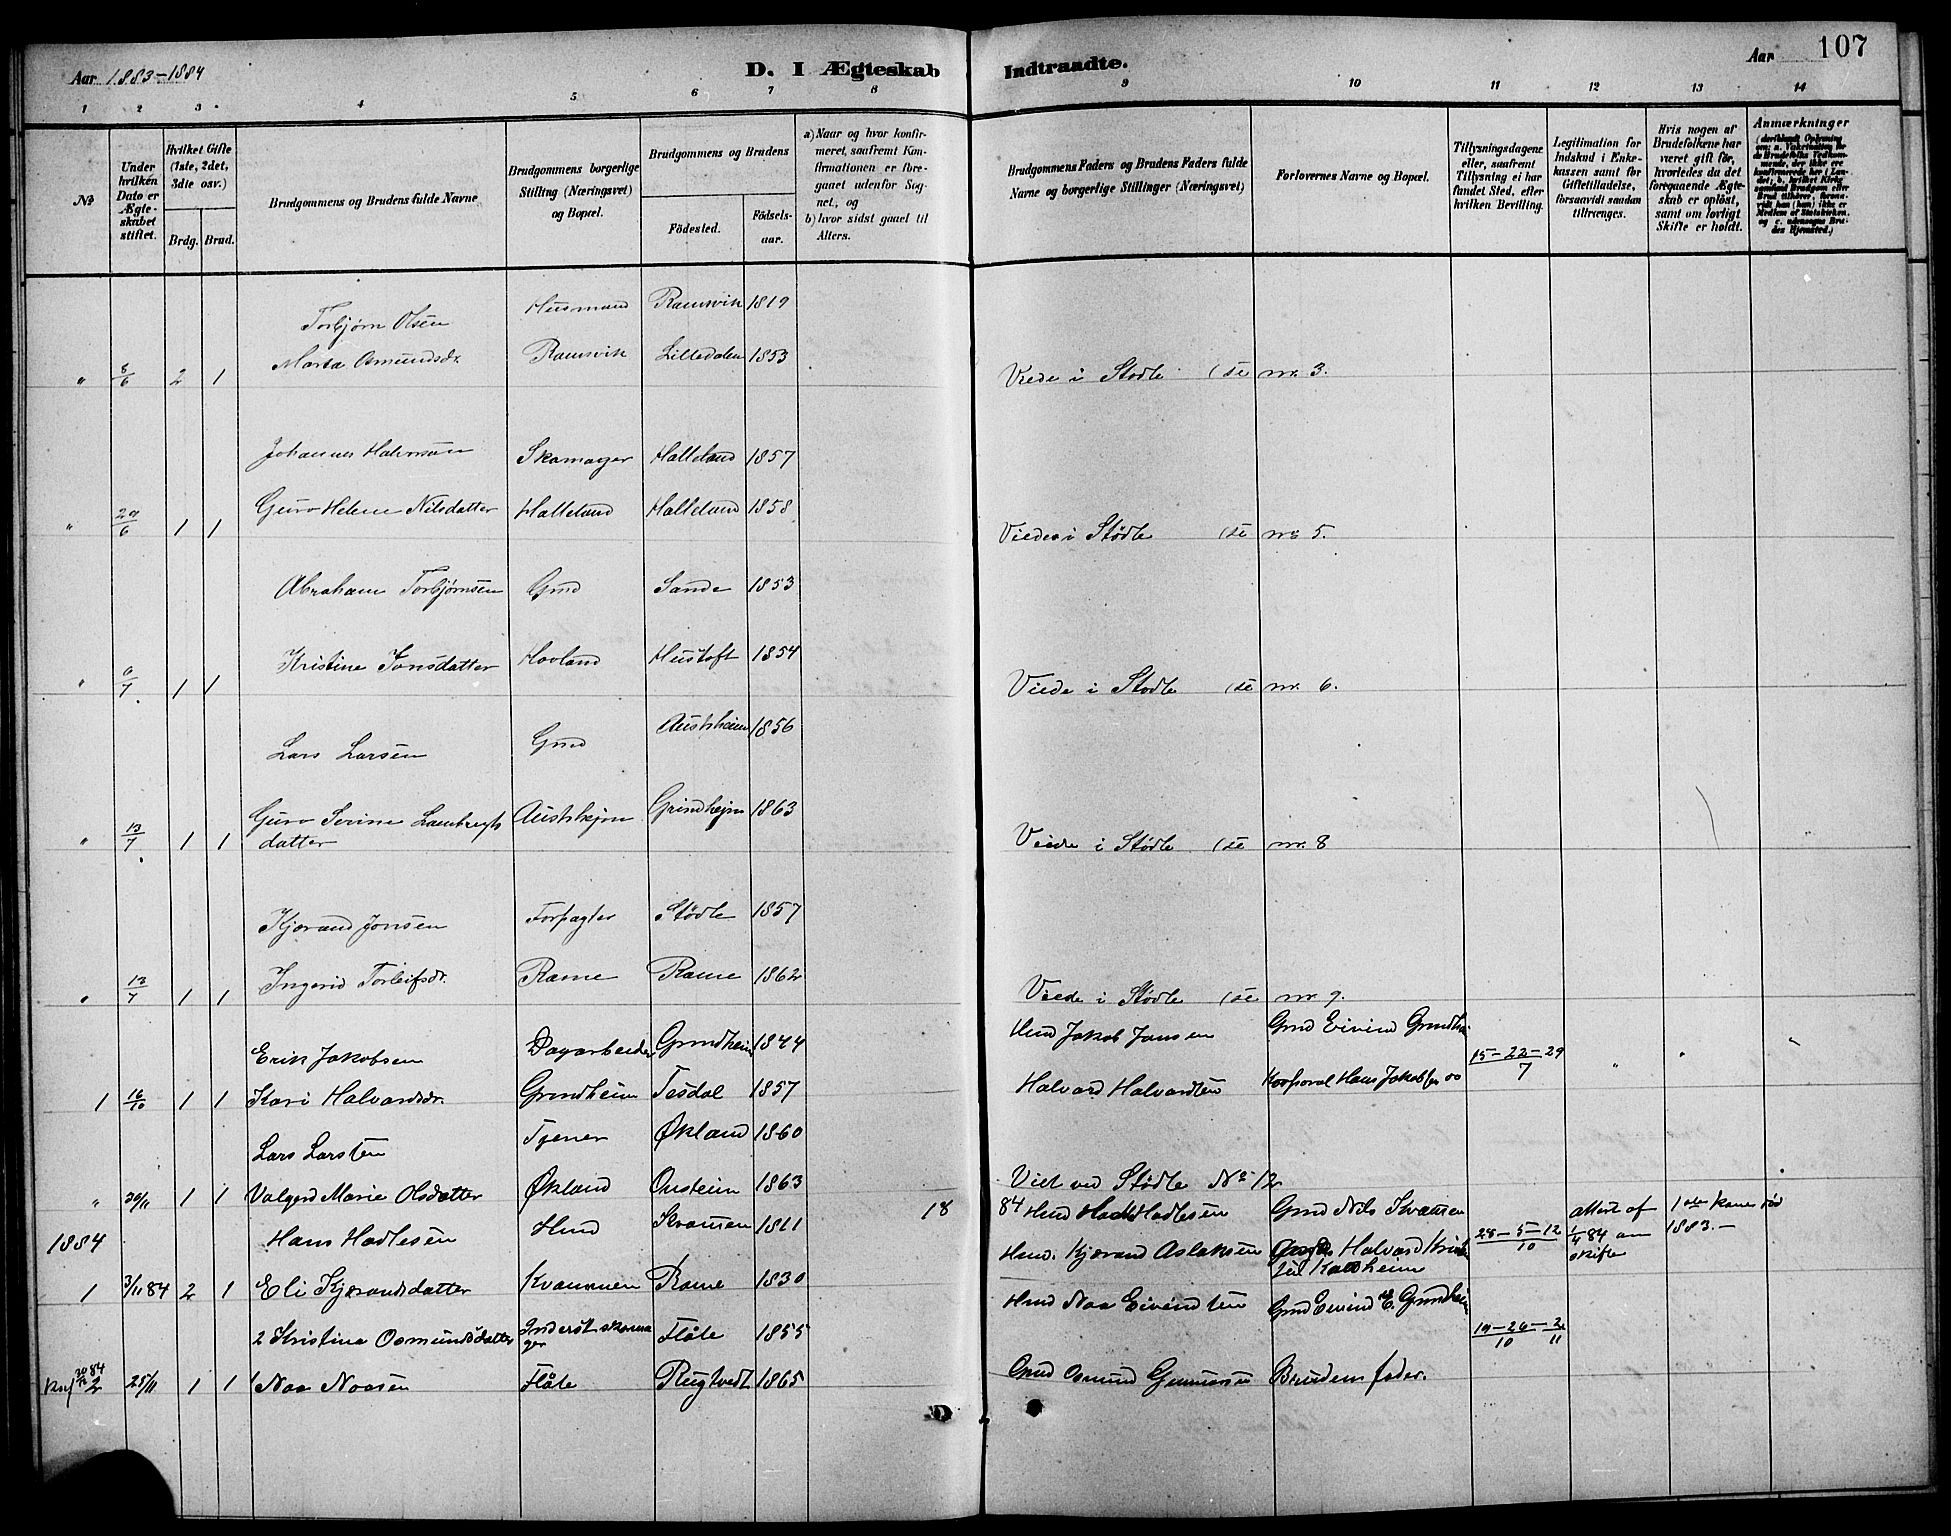 Aar 1883-1884
D. I Ægteskab Indtraadte.
Aar 107
1 2 3 4 5 6 7 8 9 10 11 12 13 14
No
Under hvilken Dato er Ægteskabet stiftet.
Hvilket Gifte (1ste, 2det, 3die osv.)
Brdg. Brud.
Brudgommens og Brudens fulde Navne
Brudgommens borgerlige Stilling (Næringsvei) og Bopæl.
Brudgommens og Brudens
Fødested.
Fødsels-aar.
a) Naar og hvor konfirmeret, saafremt Konfirmationen er foregaaet udenfor Sognet, og
b) hvor sidst gaaet til Alters.
Brudgommens Faders og Brudens Faders fulde Navne og borgerlige Stillinger (Næringsvei)
Forlovernes Navne og Bopæl.
Tillysningsdagene eller, saafremt Tillysning ei har fundet Sted, efter hvilken Bevilling.
Legitimation for Indskud i Enkekassen samt for Giftetilladelse, forsaavidt saadan tiltrænges.
Hvis nogen af Brudefolkene har været gift før, hvorledes da det foregaaende Ægteskab er opløst, samt om lovligt Skifte er holdt.
Anmærkninger
Torbjørn Olsen Husmand Ramsvik 1819
" 8/6 2 1 Marta Osmundsdr. Ramsvik Lilledalen 1853 Viede i Stødle (se nr. 3.
Johannes Halvorsen Skomager Halleland 1857
" 29/6 1 1 Guro Helene Nilsdatter Halleland Halleland 1858 Viedes i Stødle (se nr 5.
Abraham Torbjørnsen Gmd Sande 1853
" 6/7 1 1 Kristine Jonsdatter Hovland Hustoft 1854 Viede i Stødle (se nr. 6.
Lars Larsen Gmd Austsheim 1856
" 13/7 1 1 Guro Serine Lambregts datter Austshejm Grindhejm 1863 Viede i Stødle (se nr. 8
Kjørand Jonsen Forpagter Stødle 1857
" 13/7 1 1 Ingerid Torleifsdr. Rame Rame 1862 Viede i Stødle (se nr. 9.
Erik Jakobsen Dagarbeider Grindheim 1844 Hmd Jakob Jansen Gmd Eivind Grindhei. 15-22-29
1 16/10 1 1 Kari Halvardsdr. Grindheim Tesdal 1857 Halvard Halvardsen Korporal Hans Jakobsen 7 "
Lars Larsen Tjener Økland 1860
" 20/11 1 1 Valgerd Marie Olsdatter Økland Onsteim 1863 Viet ved Stødle No 12
1884 Hans Hadlesen Hmd Kvamen 1811 18 84 Hmd Hadle Hadlesen Gmd Nils Kvamen 28-5-12 attest af 1ste kone død
10 1/4 84 om skifte 1883.-
1 3/11 84 2 1 Eli Kjørandsdatter Kvammen Rame 1830 Hmd. Kjørand Aslaksen Halvard
2 Kristina Osmundsdatter Flåte 1855 Hmd Naa Eivindsen Gmd Eivind E. Grindheim 19-26-2
10 11
2 25/11 1 1 Naa Naasen Flåte Rugtvedt 1865 Gmd Osmund Gunnarsen Brudens fader.